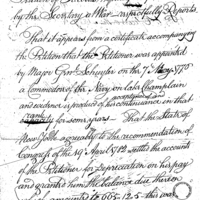 by the Secretary at War respectfully Reports
That it appears from a certificate accompanying
the Petition that the Petitioner was appointed
by Major Genl Schuyler on the 7 May 1775
a Commodore of the Navy on Lake Champlain
and evidence is produced of his continuance in that
for some years That the State of
New York agreeably to the recommendation of
Congress of the 19 April 1782 settled the accounts
of the Petitioner for Depreciation on his pay
and granted him the balance due thereon
amounts to 665.12.5 this was